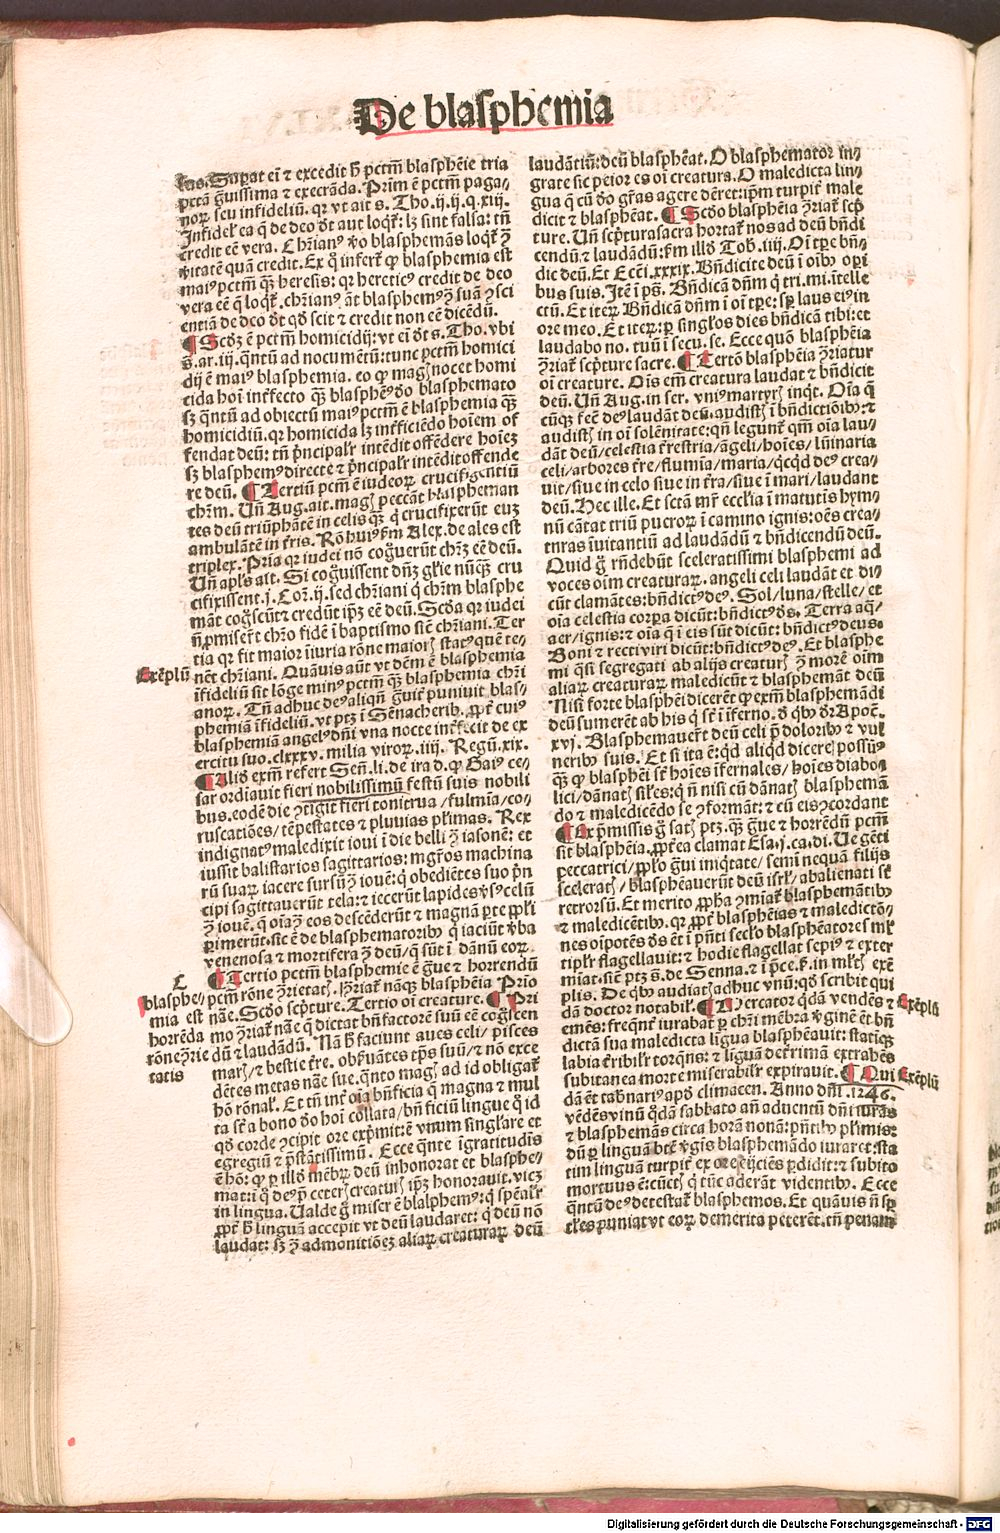 De blasphemia
tas. Supat ei ⁊ excedit h̄ pctm̄ blasphēie tria
pctā g̃uissima ⁊ execrāda. Prim ē pctm̄ paga-
noꝝ seu infideliū. qꝛ vt ait s. Tho. ij. ij. q. xiij.
Infidel̕ ea q̄ de deo d̄t aut loqt̕: lꝫ sint falsa: tn̄
credit eē vera. Chr̄ianꝰ v̄o blasphemās loqt̕ ꝯ̄
vitatē quā credit. Ex q̊ infert̕ ꝙ blasphemia est
maiꝰ pctm̄ qꝫ heresis: qꝛ hereticꝰ credit de deo
vera eē q̄ loqt̕. chr̄ianꝰ āt blasphemꝰ ꝯ̄ suā ꝯsci
entiā de deo d̄t qd̄ scit ⁊ credit non eē dicēdū.
¶ Scd̄ꝫ ē pctm̄ homicidij: vt ei d̄t s. Tho. vbi
s̄. ar. iij. q̄ntū ad nocumētū: tunc pctm̄ homici
dij ē maiꝰ blasphemia. eo ꝙ magꝭ nocet homi
cida hoī inf̄fecto qꝫ blasphēꝰ d̄o blasphemato
sꝫ q̄ntū ad obiectū maiꝰ pctm̄ ē blasphemia qꝫ
homicidiū. qꝛ homicida lꝫ int̄ficiēdo hoīem of
fendat deū: tn̄ pͥncipalr̕ intēdit offēdere hoīeꝫ
sꝫ blasphemꝰ directe ⁊ pͥncipalr̕ intēdit offende
re deū. ¶ Tertiū pcm̄ ē iudeoꝝ crucifigentiū
chr̄m. Vn̄ Aug. ait. magꝭ peccāt blaspheman
tes deū triūphātē in celis qꝫ q̇ crucifixerūt euꝫ
ambulātē in t̄ris. Rō huiꝰ ẜm Alex. de ales est
triplex. Pria qꝛ iudei nō cog̃uerūt chr̄ꝫ eē deū.
Vn̄ apl̕s ait. Si cog̃uissent dn̄ꝫ gl̕ie nūqꝫ cru
cifixissent. j. Coꝛ. ij. sed chr̄iani q̇ chr̄m blasphe
māt cog̃scūt ⁊ credūt ip̄ꝫ eē deū. Scd̄a qꝛ iudei
n̄ ꝓmiser̄t chr̄o fidē ī baptismo sic̄ chr̄iani. Ter
tia qꝛ fit maior iīuria rōne maiorꝭ statꝰ quē te-
nēt chr̄iani. Quāuis aūt vt dc̄m ē blasphemia
īfideliū sit lōge minꝰ pctm̄ qꝫ blasphemia chr̄i
anoꝝ. Tn̄ adhuc deꝰ aliqn̄ g̃uit̕ puniuit blas-
phemiā īfideliū. vt ptꝫ ī Sēnacherib. ꝓpt̕ cuiꝰ
blasphemiā angelꝰ dn̄i vna nocte int̄fecit de ex
ercitu suo. clxxxv. milia viroꝝ. iiij. Regū. xix.
¶ Aliō exm̄ refert Sen̄. li. de ira d. ꝙ Gaiꝰ ce-
sar ordiauit fieri nobilissimū festū suis nobili
bus. eodē die ꝯtigit fieri tonitrua / fulmīa / co-
ruscatiōes / tēpestates ⁊ pluuias pl̕imas. Rex
indignatꝰ maledixit ioui ī die belli ꝯ̄ iasonē: et
iussit balistarios sagittarios: mgr̄os machina
rū suaꝝ iacere sursū ꝯ̄ iouē: q̇ obedietes suo pͥn
cipi sagittauerūt tela: ⁊ iecerūt lapides v̕sꝰ celū
ꝯ̄ iouē. q̄ oīa ꝯ̄ eos descēderūt ⁊ magnā ꝑtē ppl̕i
ꝑimerūt. sic ē de blasphematoribꝰ q̇ iaciūt v̕ba
venenosa ⁊ mortifera ꝯ̄ deū / q̄ sūt ī dānū eoꝝ.
¶ Tertio pctm̄ blasphemie ē g̃ue ⁊ horrendū
pcm̄ rōne ꝯ̄rietatꝭ. ꝯ̄riat̕ nāqꝫ blasphēia Prīo
nāe. Scd̄o scpͥture. Tertio oī creature. ¶ Pri
mo ꝯ̄riat̕ nāe q̄ dictat bn̄factorē suū eē cog̃scen
dū ⁊ laudādū. Nā h̄ faciunt aues celi / pisces
marꝭ / ⁊ bestie t̄re. obẜuātes tꝑs suū / ⁊ nō exce
dētes metas nāe sue. q̄nto magꝭ ad id obligat̕
hō rōnal̕. Et tn̄ int̄ oīa bn̄ficia q̄ magna ⁊ mul
ta st̄ a bono d̄o hoī collata / bn̄ficiū lingue q̊ id
qd̄ corde ꝯcipit ore expͥmit: ē vnum singl̕are et
egregiū ⁊ pͥstātissimū. Ecce q̄nte īgratitudīs
ē hō: ꝙ ꝑ illd̕ mēbꝝ deū inhonorat et blasphe-
mat: ī q̊ deꝰ p̄ ceterꝭ creaturꝭ ip̄ꝫ honorauit. vicꝫ
in lingua. Ualde g̊ miser ē blasphemꝰ: q̇ sp̄ealr̕
ꝓpt̕ h̄ linguā accepit vt deū laudaret: q̇ deū nō
laudat: sꝫ ꝯ̄ admonitiōeꝫ aliaꝝ creaturaꝝ deū
Exēplū
C
blasphe-
mia est
horrēda
rōne ꝯ̄rie
tatis
laudātiū: deū blasphēat. O blasphemator in-
grate sic peior es oī creatura. O maledicta lin-
gua q̄ cū d̄o gr̄as agere dēret: ip̄m turpit̕ male
dicit ⁊ blasphēat. ¶ Scd̄o blasphēia ꝯ̄riat̕ scpͥ
ture. Vn̄ scpͥtura sacra hortat̕ nos ad deū bn̄di
cendū ⁊ laudādū: ẜm illd̕ Tob. iiij. Oī tꝑe bn̄-
dic deū. Et Ecc̄i. xxxix. Bn̄dicite deū ī oībꝰ oꝑi
bus suis. Itē ī ps̄. Bn̄dicā dn̄m q̇ tri. mi. ītelle
ctū. Et iteꝝ Bn̄dicā dn̄m ī oī tꝑe: sꝑ laus eiꝰ in
ore meo. Et iteꝝ: ꝑ singl̕os dies bn̄dicā tibi: et
laudabo no. tuū ī secu. se. Ecce quō blasphēia
ꝯ̄riat̕ scpͥture sacre. ¶ Tertō blasphēia ꝯ̄riatur
oī creature. Oīs em̄ creatura laudat ⁊ bn̄dicit
deū. Vn̄ Aug. in ser. vniꝰ martyrꝭ inqt. Oīa q̄
cūqꝫ fec̄ deꝰ laudāt deū. audistꝭ ī bn̄dictiōibꝰ: ⁊
audistꝭ in oī solēnitate: qn̄ legunt̕ qm̄ oīa lau-
dāt deū / celestia t̄restria / āgeli / hoīes / lūinaria
celi / arbores t̄re / flumīa / maria / qͥcqd̕ deꝰ crea-
uit / siue in celo siue in t̄ra / siue ī mari / laudant
deū. Hec ille. Et sctā mr̄ ecclīa ī matutīs hym-
nū cātat triū pueroꝝ ī camino ignis: oēs crea-
turas īuitantiū ad laudādū ⁊ bn̄dicendū deū.
Quid g̊ rn̄debūt sceleratissimi blasphemi ad
voces oīm creaturaꝝ. angeli celi laudāt et di-
cūt clamātes: bn̄dictꝰ deꝰ. Sol / luna / stelle / et
oīa celestia corꝑa dicūt: bn̄dictꝰ d̄s. Terra aq̄ /
aer / ignis: ⁊ oīa q̄ ī eis sūt dicūt: bn̄dictꝰ deus.
Boni ⁊ recti viri dicūt: bn̄dictꝰ deꝰ. Et blasphe
mi q̄si segregati ab alijs creaturꝭ ꝯ̄ morē oīm
aliaꝝ creaturaꝝ maledicūt ⁊ blasphemāt deū
Nisi forte blasphēi dicerēt ꝙ exm̄ blasphemādi
deū sumerēt ab his q̇ st̄ ī īferno. d̄ qͥbꝰ d̄ꝛ Apoc̄.
xvj. Blasphemauer̄t deū celi p̄ doloribꝰ ⁊ vul
neribꝰ suis. Et si ita ē: qd̕ aliqd̕ dicere possūꝰ
qꝫ ꝙ blasphēi st̄ hoīes īfernales / hoīes diabo-
lici / dānatꝭ sil̕es: q̇ n̄ nisi cū dānatꝭ blasphemā
do ⁊ maledicēdo se ꝯformāt: ⁊ cū eis ꝯcordant
¶ Ex pͥmissis g̊ satꝭ ptꝫ. qꝫ g̃ue ⁊ horrēdū pcm̄
sit blasphēia. ꝓpt̕ea clamat Esa. j. ca. di. Ue gēti
peccatrici / ppl̕o g̃ui iniqͥtate / semī nequā filijs
sceleratꝭ / blasphēauerūt deū isrl̕ / abalienati st̄
retrorsū. Et merito ꝓph̕a ꝯmiat̕ blasphemātibꝰ
⁊ maledicētibꝰ. qꝛ ꝓpt̕ blasphēias ⁊ maledictō-
nes oīpotēs d̄s ēt ī pn̄ti secl̕o blasphēatores ml̕
tipl̕r flagellauit: ⁊ hodie flagellat sepiꝰ ⁊ exter
miat. sic̄ ptꝫ s̄. de Senna. ⁊ ī pͥce. k̕. in ml̕tꝭ exē
plis. De qͥbꝰ audiatꝭ adhuc vnū: qd̄ scribit qui
dā doctor notabil̕. ¶ Mercator qͥdā vendēs ⁊
emēs: freqn̄t̕ iurabat ꝑ chr̄i mēbra v̕ginē ēt bn̄
dictā sua maledicta līgua blasphēauit: statīqꝫ
labia t̄ribilr̕ torqn̄s: ⁊ līguā deformā extrahēs
subitanea morte miserabilr̕ expirauit. ¶ Qui
dā ēt tabnariꝰ apd̕ climacen. Anno dn̄i. 1246.
vēdēs vinū qͥdā sabbato an̄ aduentū dn̄i iurās
⁊ blasphemās circa horā nonā: pn̄tibꝰ pl̕imis:
dū ꝑ linguā bt̄e v̕gis blasphemādo iuraret: sta
tim linguam turpit̕ ex ore eijciēs ꝑdidit: ⁊ subito
mortuus ē: cūctꝭ q̇ tūc aderāt videntibꝰ. Ecce
q̄ntū deꝰ detestat̕ blasphemos. Et quāuis n̄ sꝑ
tl̕es puniat vt eoꝝ demerita peterēt. tn̄ penam
Exēplū
Exēplū
Digitalisierung gefördert durch die Deutsche Forschungsgemeinschaft - DFG